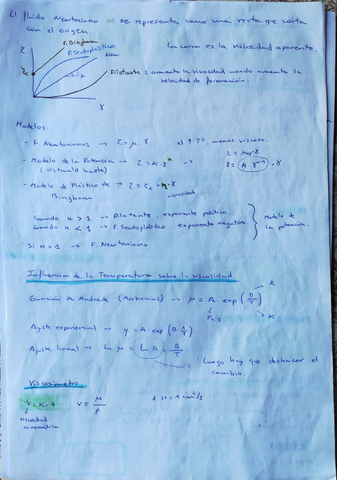 El fluido Newtoniano se representa como una recta que corta
con el origen
La curva es la viscosidad aparente.
τ
P. Bingham
Pseudoplástico
New
τc
Dilatante: aumenta la viscosidad cuando aumenta la
velocidad de formación.
γ
Modelos:
- F. Newtonianos → τ = μ · γ el ↑Tª, menos viscoso.
- Modelo de la Potencia → τ = K · γⁿ
(Ostwald
- Modelo de Plástico de → τ = τc + · γ
Bingham
viscosidad
cuando n > 1 → Dilatante, exponente positivo.
cuando n < 1 → P. Seudoplástico exponente negativo.
Modelo de
la potencia.
Si n = 1 → F. Newtoniano
Influencia de la Temperatura sobre la viscosidad
Ecuación de Andrade (Arrhenius) → μ = A · exp (B/T)
K
Ajuste exponencial → y = A · exp (B · 1/T)
Ajuste lineal → ln μ = ln A + B/T
Luego hay que deshacer el
cambio.
Viscosímetro
V = K · t
V = μ/ρ
1 st = 1 cm²/s
viscosidad
cinemática